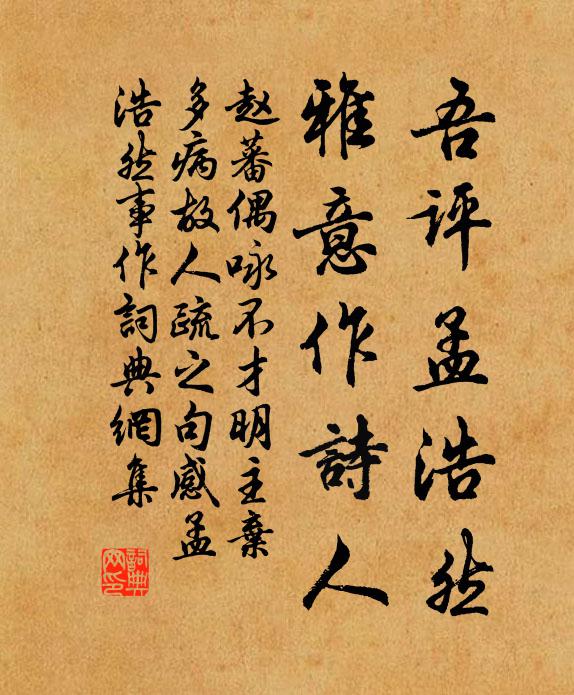 吾评孟浩然
雅意作詩人
赵蕃偶咏不才明主棄
多病故人疏之句感孟
浩然事作詞典網集
詞典网印